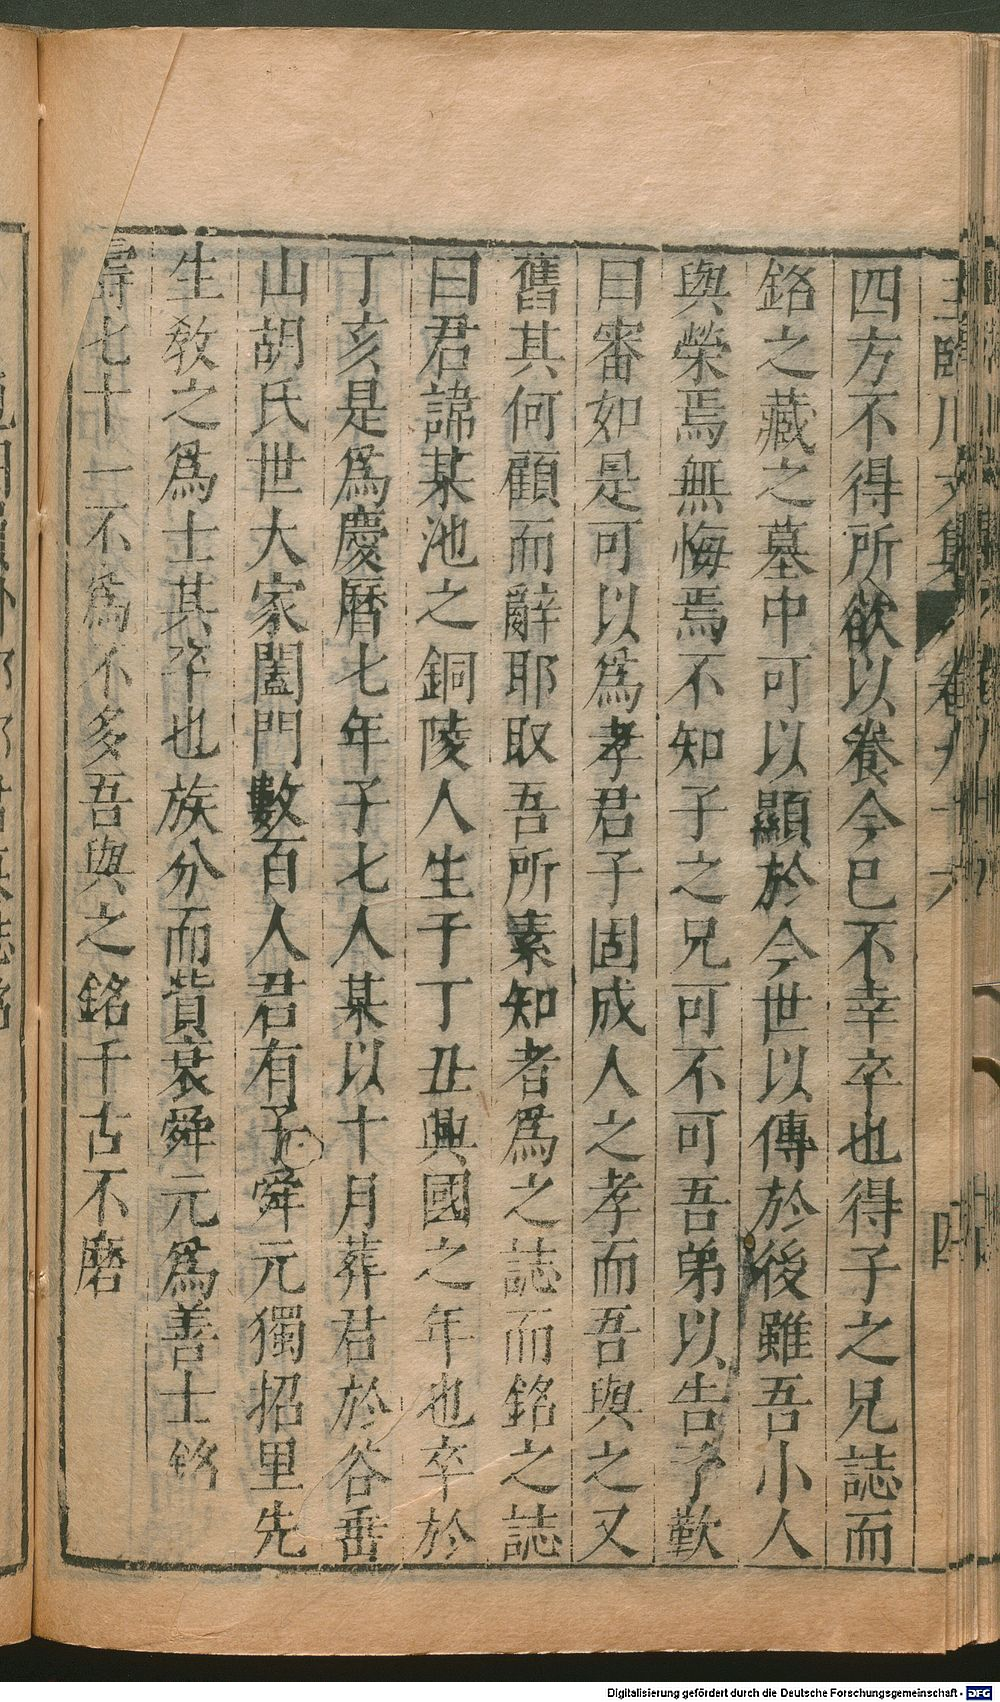 王臨川文集 卷九十六 四
四方不得所欲以養今已不幸卒也得子之兄誌而
銘之藏之墓中可以顯於今世以傳於後雖吾小人
與榮焉無悔焉不知子之兄可不可吾弟以告予歎
曰審如是可以爲孝君子固成人之孝而吾與之又
舊其何顧而辭耶取吾所素知者爲之誌而銘之誌
曰君諱某池之銅陵人生于丁丑興國之年也卒於
丁亥是爲慶曆七年子七人某以十月葬君於谷垂
山胡氏世大家闔門數百人君有子舜元獨招里先
生教之爲士其卒也族分而貲衰舜元爲善士銘
壽七十一不爲不多吾與之銘千古不磨
Digitalisierung gefördert durch die Deutsche Forschungsgemeinschaft - DFG